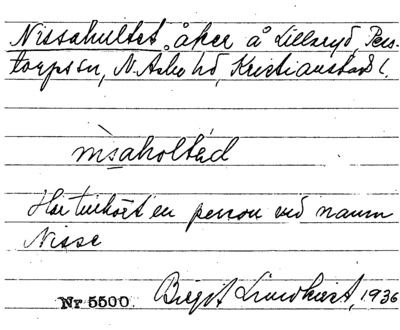 Nissahultet, åker å Lillaryd, Pers-
torps sn, N. Åsbo hd, Kristianstads l.
nìsaholtəd
Har tillhört en person vid namn
Nisse
Nr 5500. Birgit Lindkvist, 1936